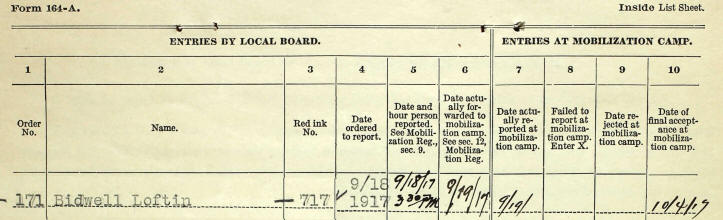 Form 164-A.
Inside List Sheet.
ENTRIES BY LOCAL BOARD.
ENTRIES AT MOBILIZATION CAMP.
1 2 3 4 5 6 7 8 9 10
Order
No.
Name.
Red ink
No.
Date
ordered
to report.
Date and
hour person
reported.
See Mobili-
zation Reg.,
sec. 9.
Date actu-
ally for-
warded to
mobiliza-
tion camp.
See sec. 12,
Mobiliza-
tion Reg.
Date actu-
ally re-
ported at
mobiliza-
tion camp.
Failed to
report at
mobiliza-
tion camp.
Enter X.
Date re-
jected at
mobiliza-
tion camp.
Date of
final accept-
ance at
mobiliza-
tion camp.
171
Bidwell Loftin
717
9/18
1917
9/18/17
3 30 PM
9/19/17
9/19/
10/4/17